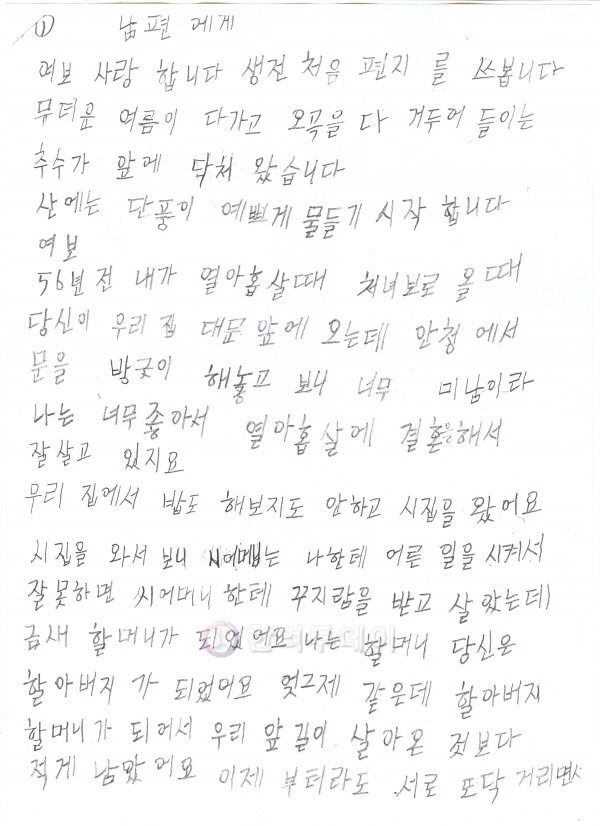 ① 남편 에게
여보 사랑 합니다 생전 처음 편지 를 쓰봅니다
무더운 여름이 다가고 오곡을 다 거두어 들이는
추수가 앞에 닥처 왔습니다
산에는 단풍이 예쁘게 물들기 시작 합니다
여보
56년전 내가 열아홉살때 처녀보로 올때
당신이 우리집 대문앞에 오는데 안청에서
문을 방긋이 해놓고 보니 너무 미남이라
나는 너무좋아서 열아홉살에 결혼을해서
잘살고 있지요
우리 집에서 밥도 해보지도 안하고 시집을 왔어요
시집을 와서 보니 는 나한테 어른 일을 시켜서
잘못하면 씨어머니한테 꾸지람을 받고 살았는데
금새 할머니가 되었어요 나는 할머니 당신은
할아버지 가 되었어요 엊그제 같은데 할아버지
할머니가 되어서 우리 앞길이 살아온 것보다
적게 남았어요 이제 부터라도 서로 또닥 거리면서